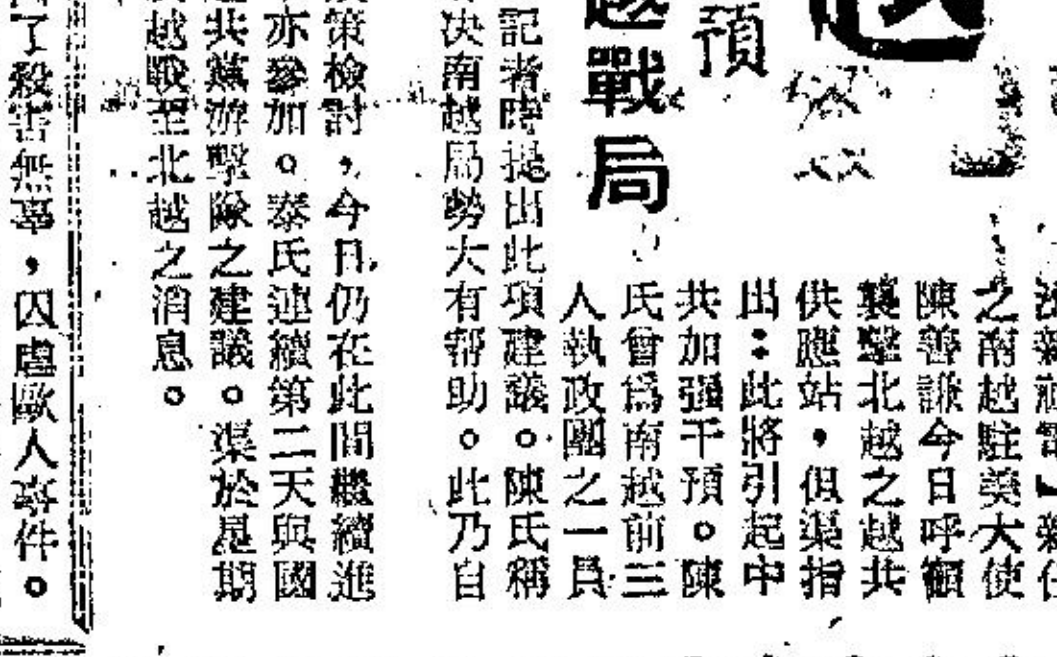 預
越戰局
之南越駐美大使
陳善謙今日呼籲
襲擊北越之越共
供應站，但渠指
出：此將引起中
共加强干預。陳
氏曾爲南越前三
人執政團之一員
記者時提出此項建議。陳氏稱
决南越局勢大有帮助。此乃自
策檢討，今日仍在此間繼續進
亦參加。泰氏連續第二天與國
共黨游擊隊之建議。渠於星期
越戰至北越之消息。
了殺害無辜，囚虐歐人事件。